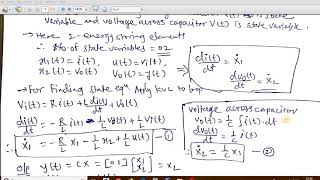 variable and voltage across capacitor V(t) is state variable.
→ Here 2-energy storing element
∴ No. of state variables = 02
x₁(t) = i(t), u(t) = Vi(t),
x₂(t) = V₀(t), V₀(t) = y(t)
→ For finding state eqⁿ Apply KVL to loop
Vi(t) = R i(t) + L di(t)/dt + V₀(t)
di(t)/dt = -R/L i(t) - 1/L V₀(t) + 1/L Vi(t)
ẋ₁ = -R/L x₁ - 1/L x₂ + 1/L u(t) — ①
o/p y(t) = CX = [0 1] [x₁ x₂] = x₂
di(t)/dt = ẋ₁
dv₀(t)/dt = ẋ₂
voltage across capacitor
V₀(t) = 1/C ∫ i(t) dt
dv₀(t)/dt = 1/C i(t)
ẋ₂ = 1/C x₁ — ②